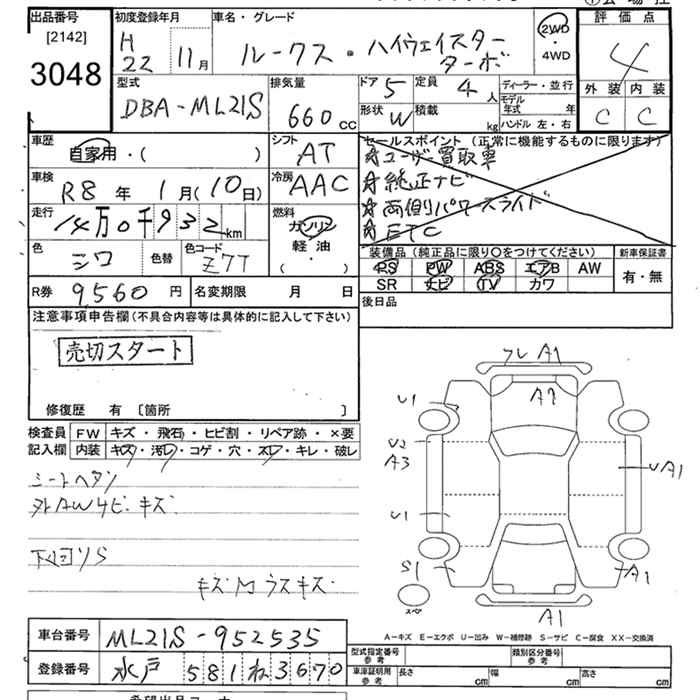 出品番号
[2142]
3048
初度登録年月
H22 11月
車名・グレード
ルークス・ハイウェイスター
ターボ
2WD
・
4WD
評価点
4
外装 内装
C C
型式
DBA-ML21S
排気量
660cc
ドア 5
定員 4人
形状 W
積載 kg
ディーラー・並行
モデル年式 年
ハンドル 左・右
車歴
自家用・( )
シフト
AT
車検
R8年 1月(10日)
冷房
AAC
走行
14万0千932km
燃料
ガソリン
軽・油
( )
色
シロ
色替
色コード
Z7T
R券 9560円
名変期限 月 日
セールスポイント (正常に機能するものに限ります)
☆ユーザー買取車
☆純正ナビ
☆両側パワースライド
☆ETC
装備品 (純正品に限り○をつけてください)
PS PW ABS エアB AW
SR ナビ TV カワ
新車保証書
有・無
後日品
注意事項申告欄(不具合内容等は具体的に記入して下さい)
売切スタート
修復歴 有 [箇所 ]
検査員
記入欄
FW キズ・飛石・ヒビ割・リペア跡・×要
内装 キズ・汚レ・コゲ・穴・スレ・キレ・破レ
シートヘタリ
外AWサビ・キズ
下回りS
キズM ラスキズ
フレA1
A7
U1
U2
A3
U1
S1
UA1
A1
A1
スペ
A−キズ E−エクボ U−凹み W−補修跡 S−サビ C−腐食 XX−交換済
車台番号 ML21S-952535
登録番号 水戸 581 ね 3670
型式指定番号
参考
類別区分番号
参考
車庫証明用
参考
長さ cm
幅 cm
高さ cm